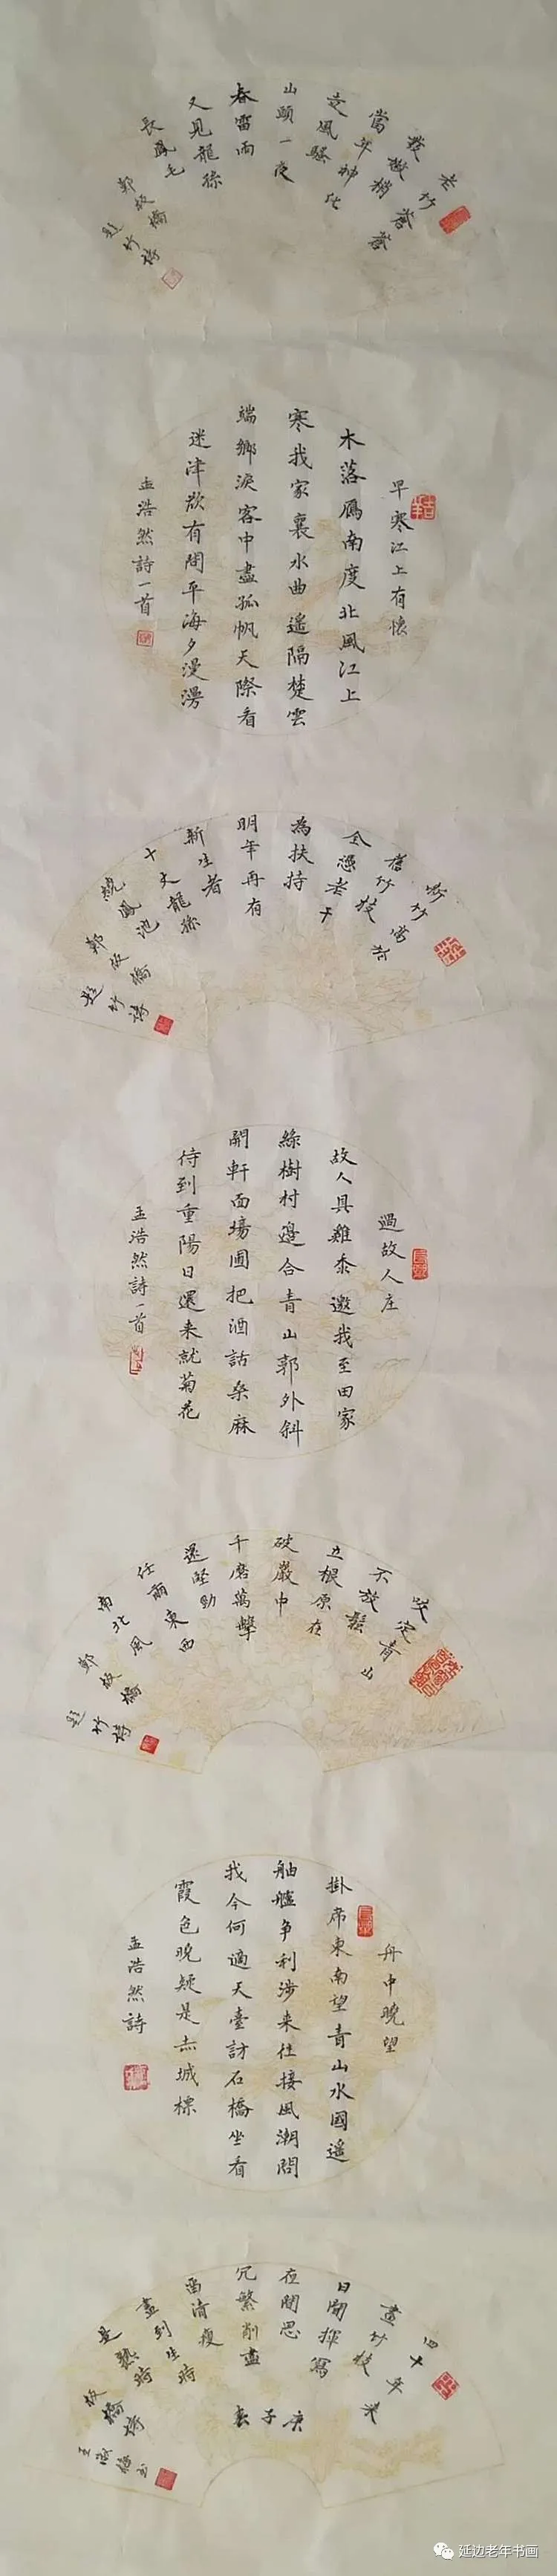 老竹蒼蒼
數撇梢
當年神化
走風騷
山頭一夜
春雷雨
又見龍孫
長鳳毛
鄭板橋
題竹詩
早寒江上有懷
木落雁南度北風江上
寒我家襄水曲遥隔楚雲
端鄉淚客中盡孤帆天際看
迷津欲有問平海夕漫漫
孟浩然詩一首
新竹高於
舊竹枝
全憑老干
為扶持
明年再有
新生者
十丈龍孫
繞鳳池
鄭板橋
題竹詩
過故人庄
故人具雞黍邀我至田家
綠樹村邊合青山郭外斜
開軒面場圃把酒話桑麻
待到重陽日還来就菊花
孟浩然詩一首
咬定青山
不放鬆
立根原在
破巖中
千磨萬擊
還堅勁
任爾東西
南北風
鄭板橋
題竹詩
舟中曉望
掛席東南望青山水國遥
舳艫争利涉来往接風潮問
我今何適天臺訪石橋坐看
霞色晚疑是赤城標
孟浩然詩
四十年来
畫竹枝
日間揮寫
夜間思
冗繁削盡
留清瘦
畫到生時
是熟時
板橋詩
庚子春
延边老年书画